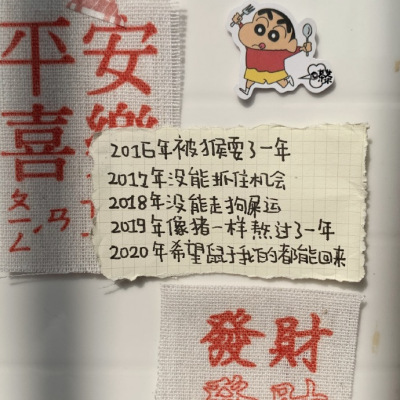 平安
喜樂
2016年被猴耍了一年
2017年没能抓住机会
2018年没能走狗屎运
2019年像猪一样熬过了一年
2020年希望鼠于我的都能回来
發財
發財